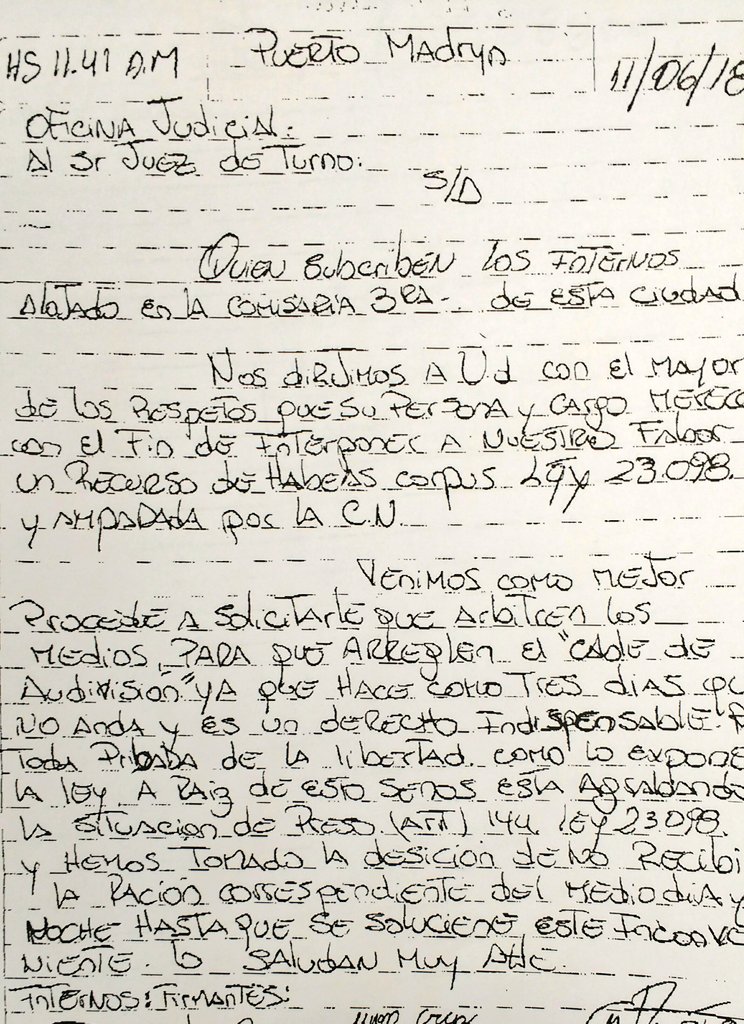 HS 11.41 A.M Puerto Madryn 11/06/18
Oficina Judicial.
Al Sr Juez de Turno.
S/D
Quien Subscriben los Internos
Alojado en la comisaria 3RA-. de esta ciudad
Nos dirijimos A Ud con el mayor
de los Respetos que su Persona y cargo merece
con el Fin de Interponer A Nuestro Fabor
un Recurso de Habeas corpus Ley 23.098
y AMPARADA por la C.N.
Venimos como mejor
Procede A solicitarle que Arbitren los
Medios, PARA que Arreglen el "Cable de
Audivisión" ya que Hace como Tres dias qu
No Anda y es un derecho Indispensable P
Toda Pribada de la libertad. como lo expone
la ley. A Raiz de esto senos esta Agrabando
la situacion de Preso (Art) 144. ley 23098.
y Hemos Tomado la desicion de No Recibi
la Racion correspondiente del Medio dia y
Noche Hasta que se solucione este Inconve
niente. lo saludan Muy Atte
Internos: Firmantes: